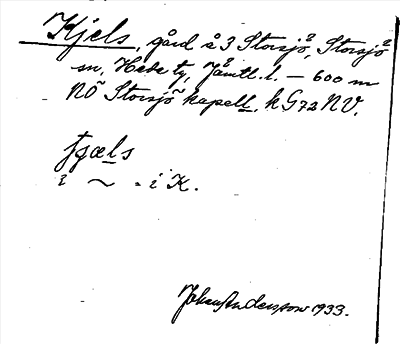 Kjels, gård å 3 Storsjö, Storsjö
sn, Hede tg, Jämtl. l. — 600 m
NÖ Storsjö kapell. k G72 NV.
fjæls
i ~ - i K.
Johan Andersson 1933.